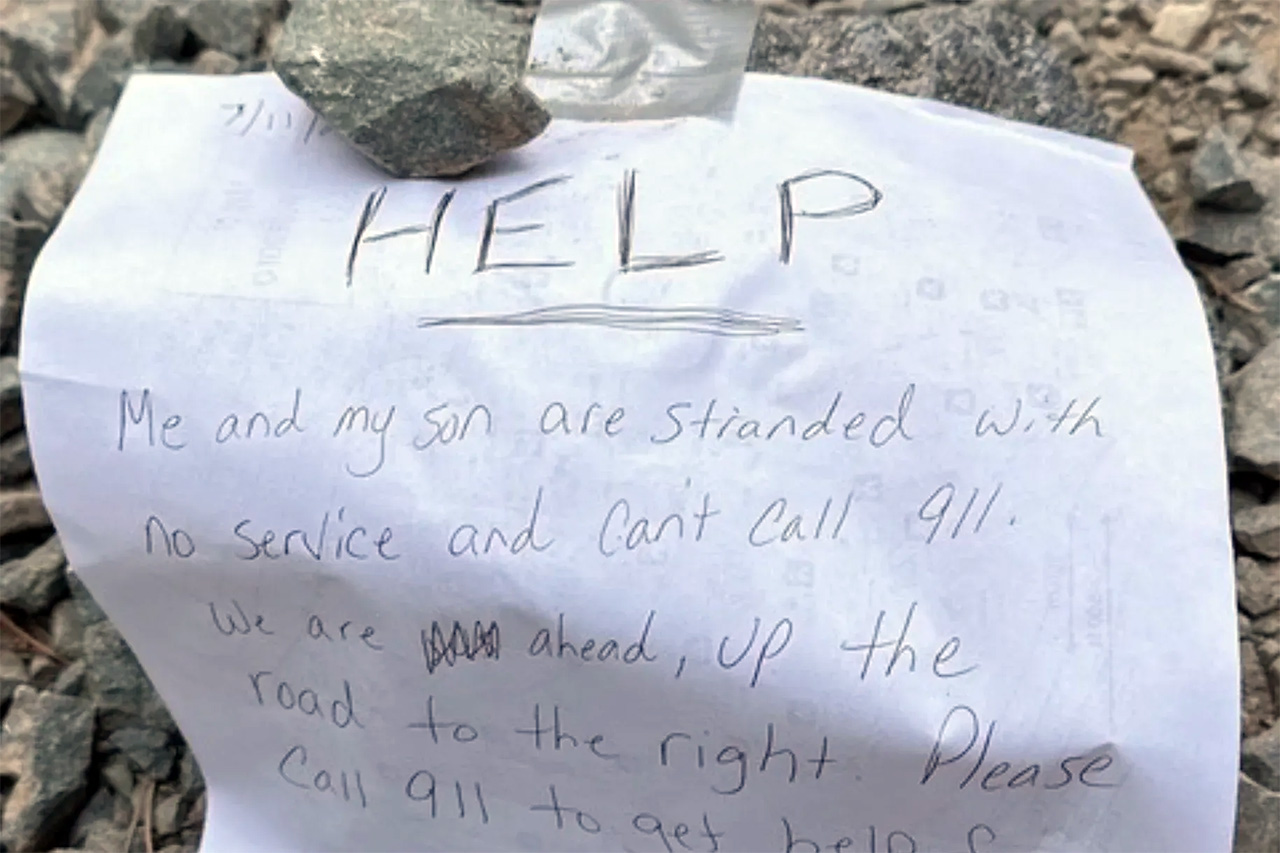 7/11/
HELP
Me and my son are stranded with
no service and can't call 911.
We are ahead, up the
road to the right. Please
Call 911 to get help